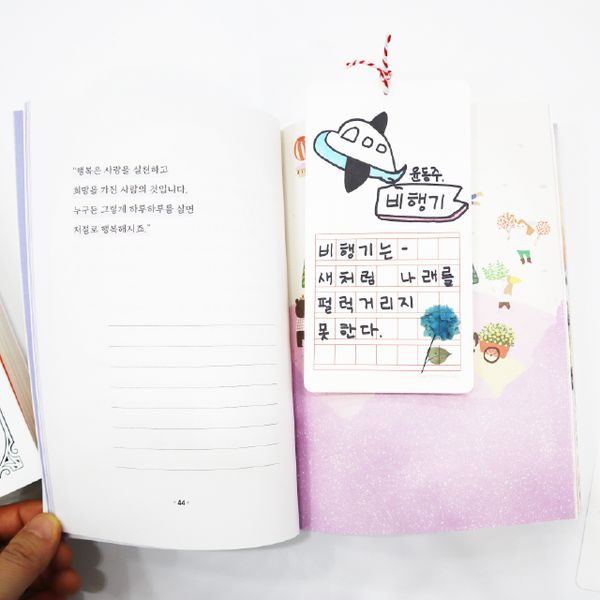 "행복은 사랑을 실천하고
희망을 가진 사람의 것입니다.
누구든 그렇게 하루하루를 살면
저절로 행복해지죠."
- 44 -
윤동주.
비행기
비행기는-
새처럼 나래를
펄럭거리지
못한다.